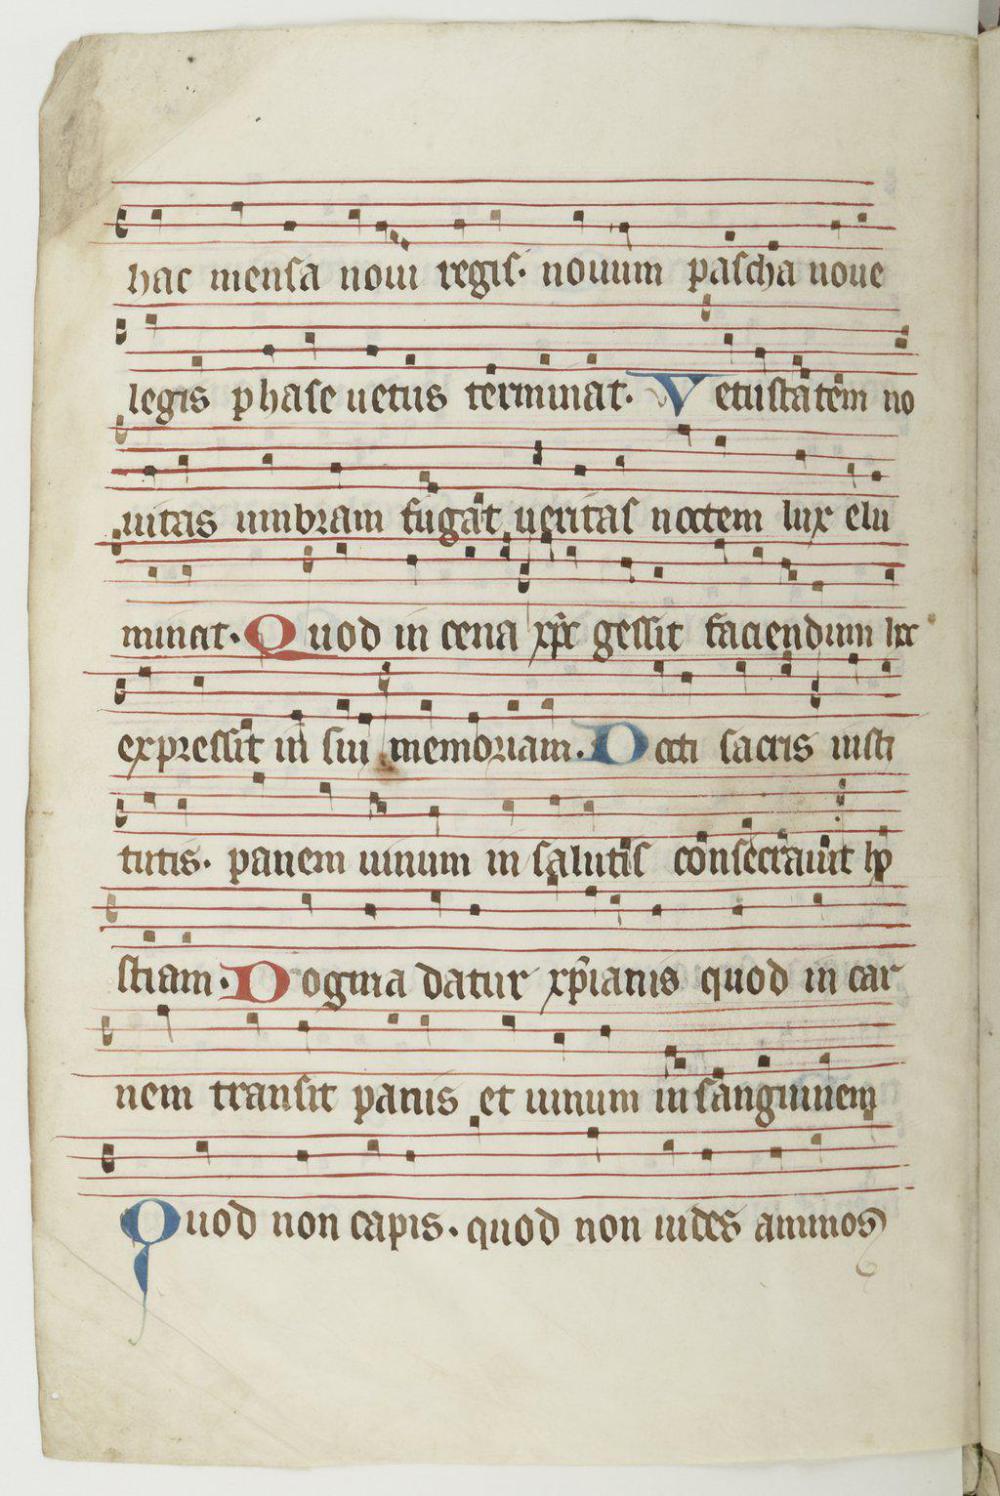 hac mensa noui regis. nouum pascha noue
legis phase uetus terminat. Vetustatem no
uitas umbram fugat ueritas noctem lux elu
minat. Quod in cena xp̄c gessit faciendum hͨ
expressit in sui memoriam. Docti sacris insti
tutis. panem uinum in salutis consecrauit ho
stiam. Dogma datur xp̄ianis quod in car
nem transit panis et uinum in sanguinem
Quod non capis. quod non uides animos